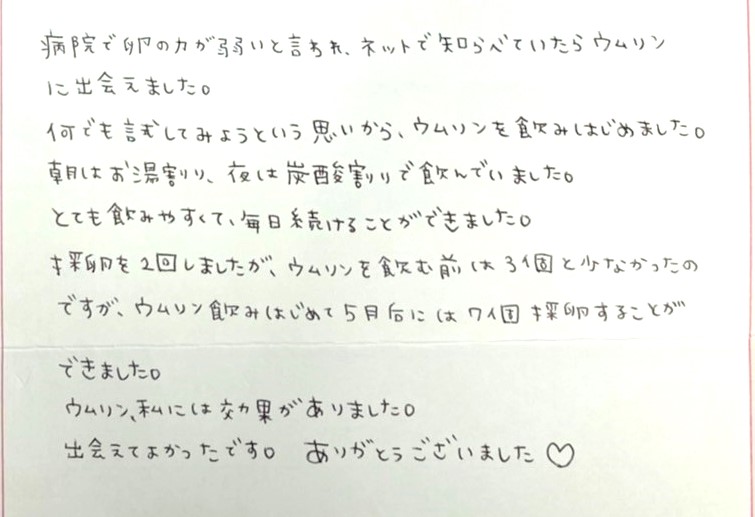 病院で卵の力が弱いと言われ、ネットで知らべていたらウムリン
に出会えました。
何でも試してみようという思いから、ウムリンを飲みはじめました。
朝はお湯割り、夜は炭酸割りで飲んでいました。
とても飲みやすくて、毎日続けることができました。
採卵を2回しましたが、ウムリンを飲む前は3個と少なかったの
ですが、ウムリン飲みはじめて5月后には7個採卵することが
できました。
ウムリン、私には効果がありました。
出会えてよかったです。 ありがとうございました♡